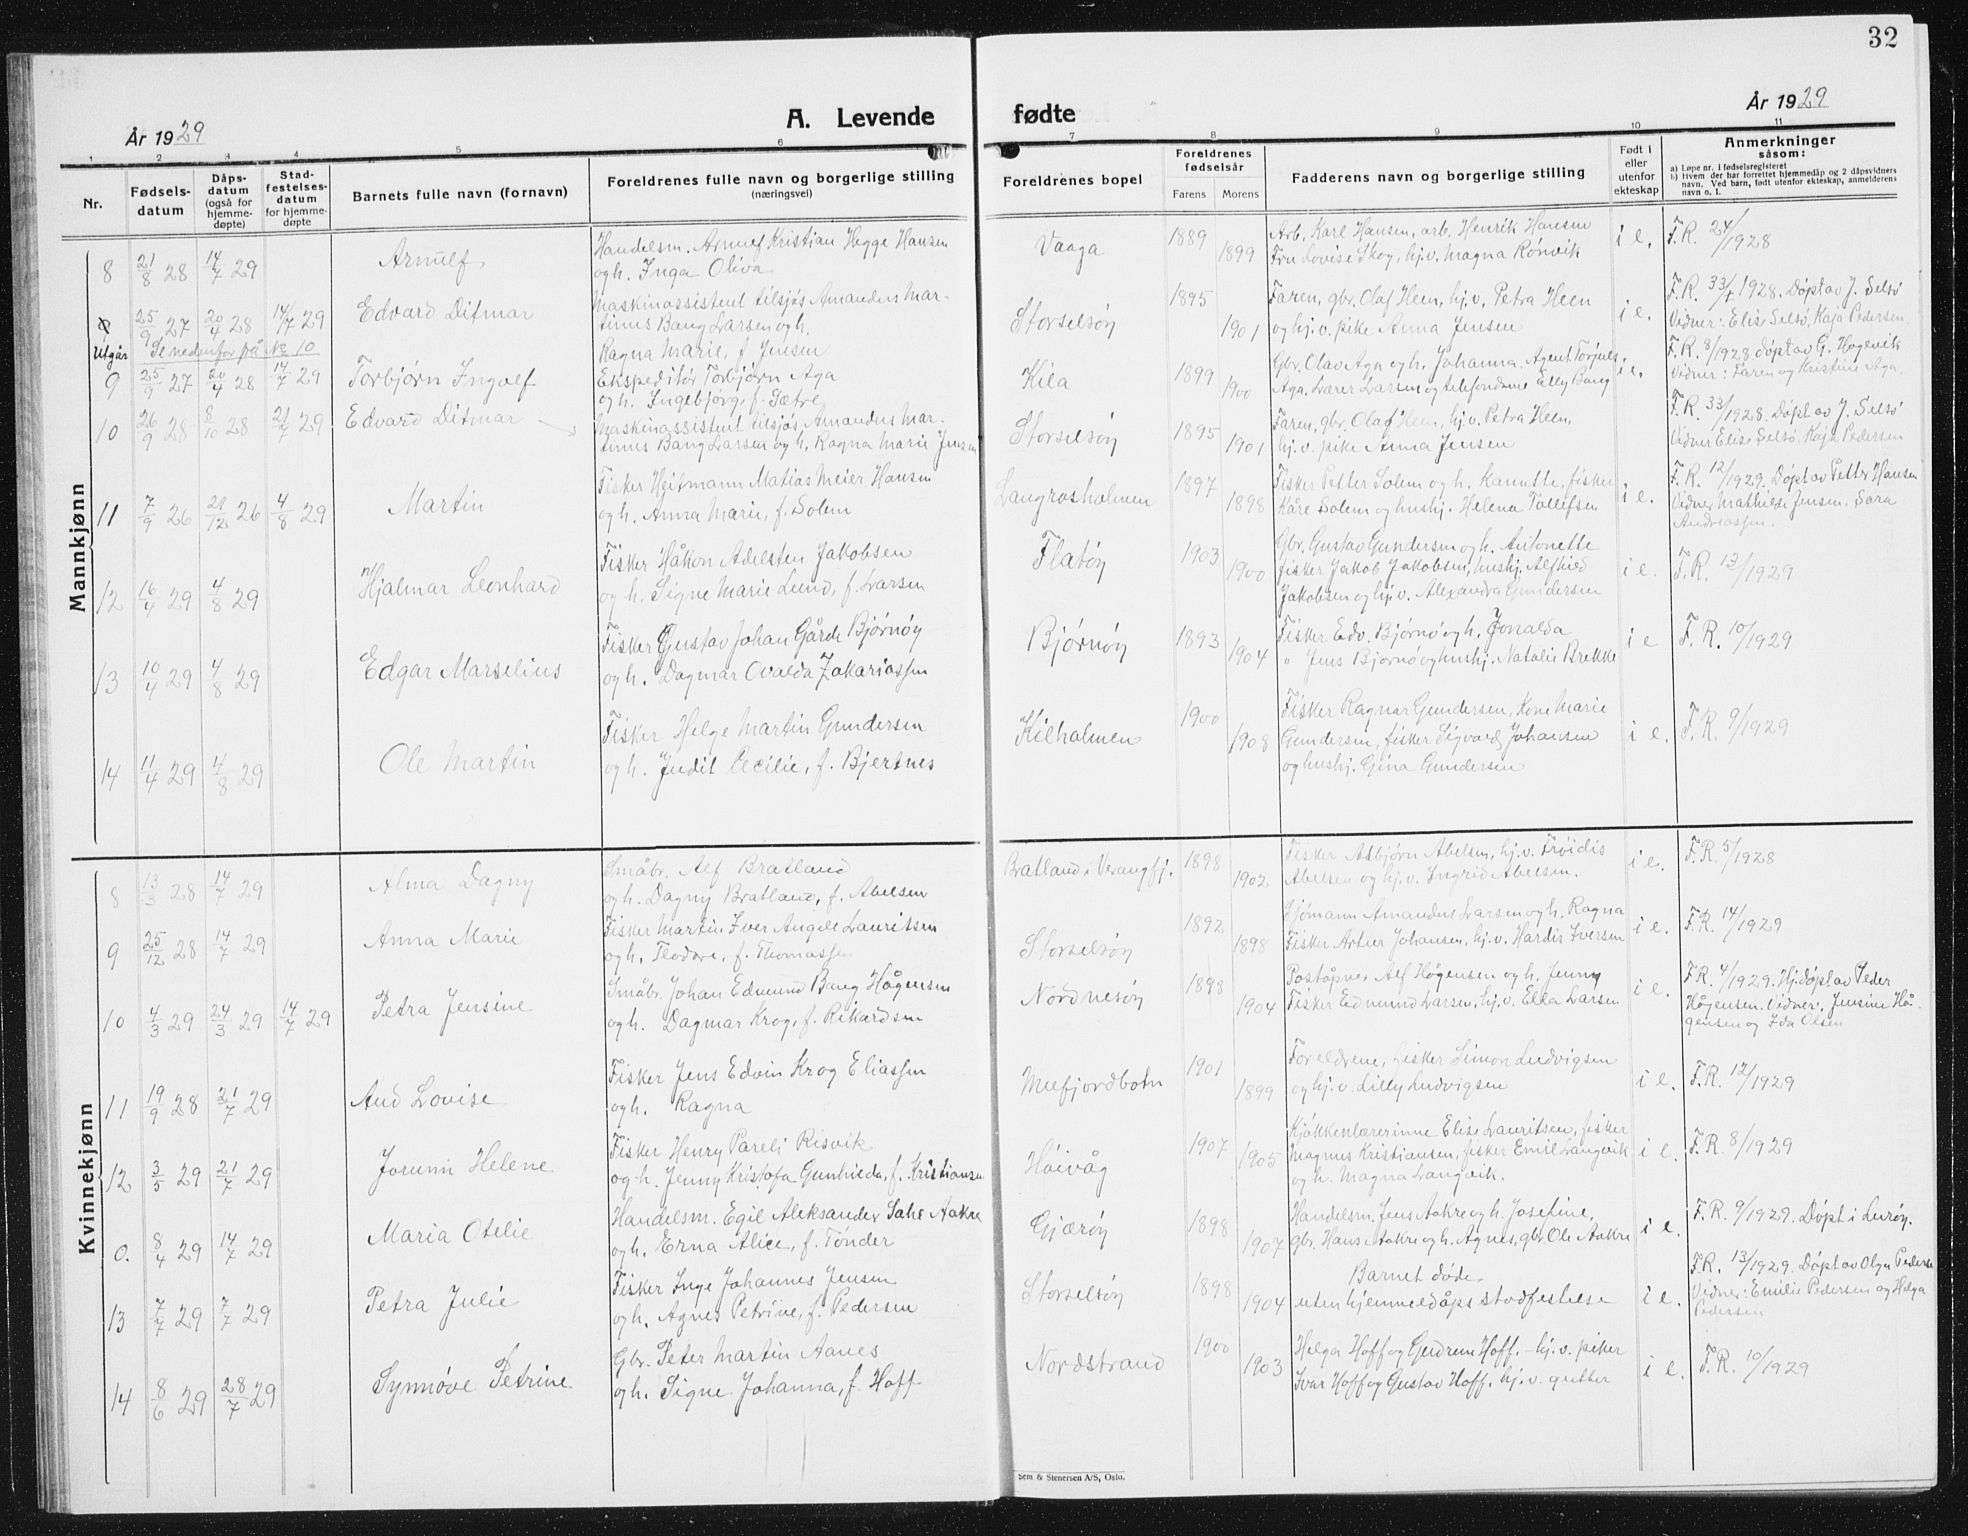 32
År 1929
A. Levende
fødte
År 1929
1 2 3 4 5 6 7 8 9 10 11
Nr.
Fødsels-
datum
Dåps-
datum
(også for
hjemme-
døpte)
Stad-
festelses-
datum
for hjemme-
døpte
Barnets fulle navn (fornavn)
Foreldrenes fulle navn og borgerlige stilling
(næringsvei)
Foreldrenes bopel
Foreldrenes
fødselsår
Farens Morens
Fadderens navn og borgerlige stilling
Født i
eller
utenfor
ekteskap
Anmerkninger
såsom:
a) Løpe nr. i fødselsregisteret
b) Hvem der har forrettet hjemmedåp og 2 dåpsvidners
navn. Ved barn, født utenfor ekteskap, anmelderens
navn o. l.
Mannkjønn
8 21/8 28 14/7 29 Arnulf
Handelsm. Arnulf Kristian Hegge Hansen
og h. Inga Oliva
Vaaga 1889 1899
Arb. Karl Hansen, arb. Henrik Hansen
Fru Lovise Skog, hj.v. Magna Rønvik
i e. F.R. 24/1928
Utgår 25/9 27 20/4 28 14/7 29 Edvard Ditmar
Se nedenfor på No 10
Maskinassistent tilsjøs Amandus Mar-
tinus Bang Larsen og h.
Ragna Marie, f. Jensen
Storselsöy 1895 1901
Faren, gbr. Olaf Heen, hj.v. Petra Heen
og hj.v. pike Anna Jensen
i e. F.R. 33/1928. Döpt av J. Selsö
Vidner: Elise Selsö, Kaja Pedersen
9 25/9 27 20/4 28 14/7 29 Torbjörn Ingolf
Ekspeditör Torbjörn Aga
og h. Ingebjörg, f. Sætre
Kila 1899 1900
Gbr. Olav Aga og h. Johanna. Agent Torjus
Aga, Lærer Larsen og telefondame Elly Bang
i e. F.R. 8/1928 döpt av G. Hagevik
Vidner: Faren og Kristine Aga.
10 26/9 28 8/10 28 21/7 29 Edvard Ditmar
Maskinassistent tilsjøs Amandus Mar-
tinus Bang Larsen og h. Ragna Marie Jensen
Storselsöy 1895 1901
Faren, gbr. Olaf Heen, hj.v. Petra Heen,
hj.v. pike Anna Jensen
F.R. 33/1928. Döpt av J. Selsö
Vidner Elise Selsö, Kaja Pedersen
11 7/9 26 21/12 26 4/8 29 Martin
Fisker Heitmann Matias Meier Hansen
og h. Anna Marie, f. Solem
Langrasholmen 1897 1898
Fisker Petter Solem og h. Kanutte, fisker
Kåre Solem og hushj. Helena Tollefsen
i e. F.R. 12/1929. Döpt av Petter Hansen
Vidner Mathilde Jensen, Sara
Andreassen.
12 16/4 29 4/8 29 Hjalmar Leonhard
Fisker Håkon Adelsten Jakobsen
og h. Signe Marie Lund, f. Larsen
Flatöy 1903 1900
Gbr. Gustav Gundersen og h. Antonette
fisker Jakob Jakobsen, hushj. Alfhild
Jakobsen og hj.v. Alexandra Gundersen
i e. F.R. 13/1929
13 10/4 29 4/8 29 Edgar Marselius
Fisker Gustav Johan Gårde Bjørnøy
og h. Dagmar Ovalda Zakariassen
Bjørnøy 1893 1904
Fisker Edv. Bjørnø og h. Jonalda
" Jens Bjørnø og hushj. Natalie Brekke
i e F.R. 10/1929
14 11/4 29 4/8 29 Ole Martin
Fisker Helge Martin Gundersen
og h. Judit Cecilie, f. Bjertnes
Kilholmen 1900 1908
Fisker Ragnar Gundersen, Kone Marie
Gundersen, fisker Sigvard Johansen
og hushj. Gina Gundersen
i e. F.R. 9/1929
Kvinnekjønn
8 13/3 28 14/7 29 Alma Dagny
Småbr. Alf Bratland
og h. Dagny Bratland, f. Abelsen
Bratland i Verangfj. 1898 1902
Fisker Asbjørn Abelsen, hj.v. Frøidis
Abelsen og hj.v. Ingrid Abelsen.
i e. F.R. 5/1928
9 25/12 28 14/7 29 Anna Marie
Fisker Martin Iver Angell Lauritsen
og h. Teodore, f. Thomassen
Storselsöy 1892 1898
Sjömann Amandus Larsen og h. Ragna
Fisker Artur Johansen, hj.v. Hardis Iversen
i e. F.R. 14/1929
10 4/3 29 24/3 29 14/7 29 Petra Jensine
Småbr. Johan Edmund Bang Hågensen
og h. Dagmar Krog, f. Rikardsen
Nordnesöy 1898 1904
Poståpner Alf Högensen og h. Jenny
Fisker Edmund Larsen, hj.v. Elka Larsen
i e. F.R. 4/1929. Hj.döpt av Peder
Högensen. Vidner. Jensine Hå-
gensen og Ida Olsen
11 19/9 28 21/7 29 Aud Lovise
Fisker Jens Edvin Krog Eliassen
og h. Ragna
Melfjordbotn 1901 1899
Foreldrene, fisker Simon Ludvigsen
og hj.v. Lilly Ludvigsen
i e. F.R. 12/1929
12 3/5 29 21/7 29 Jorunn Helene
Fisker Henry Pareli Risvik
og h. Jenny Kristofa Gunhilda, f. Kristiansen
Höivåg 1907 1905
Kjøkkenlærerinne Elise Lauritsen, fisker
Magnus Kristiansen, fisker Emil Langvik
og h. Magna Langvik.
i e. F.R. 8/1929
0. 8/4 29 14/7 29 Maria Otelie
Handelsm. Egil Aleksander Sahl Aakre
og h. Erna Alice, f. Tönder
Gjæröy 1898 1907
Handelsm. Jens Aakre og h. Josefine,
gbr. Hans Aakre og h. Agnes, gbr. Ole Aakre
i e. F.R. 9/1929. Döpt i Luröy.
13 7/7 29 7/7 29 Petra Julie
Fisker Inge Johannes Jensen
og h. Agnes Petrine, f. Pedersen
Storselsöy 1898 1904
Barnet döde
uten hjemmedåps stadfestelse
i e. F.R. 13/1929. Döpt av Olga Pedersen
Vidner: Emilie Pedersen og Helga
Pedersen
14 8/6 29 28/7 29 Synnöve Petrine
Gbr. Peter Martin Aanes
og h. Signe Johanna, f. Hoff
Nordstrand 1900 1903
Helga Hoff og Gudrun Hoff. - hj.v. piker
Ivar Hoff og Gustav Hoff, hj.v. gutter
i e. F.R. 10/1929
Sem & Stenersen A/S, Oslo.